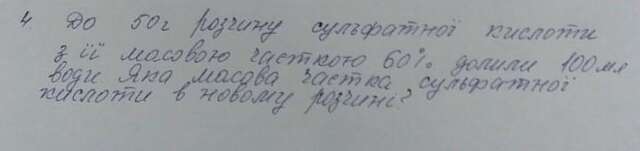 4. До 50г розчину сульфатної кислоти
з її масовою часткою 60% долили 100мл
води Яка масова частка сульфатної
кислоти в новому розчині?